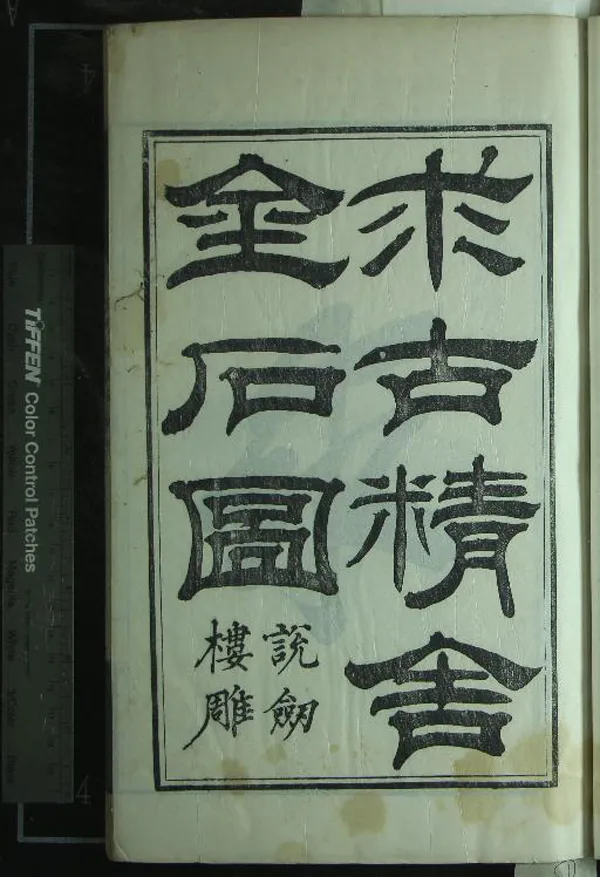 求古精舍
金石圖
說劒
樓雕
TIFFEN Color Control Patches